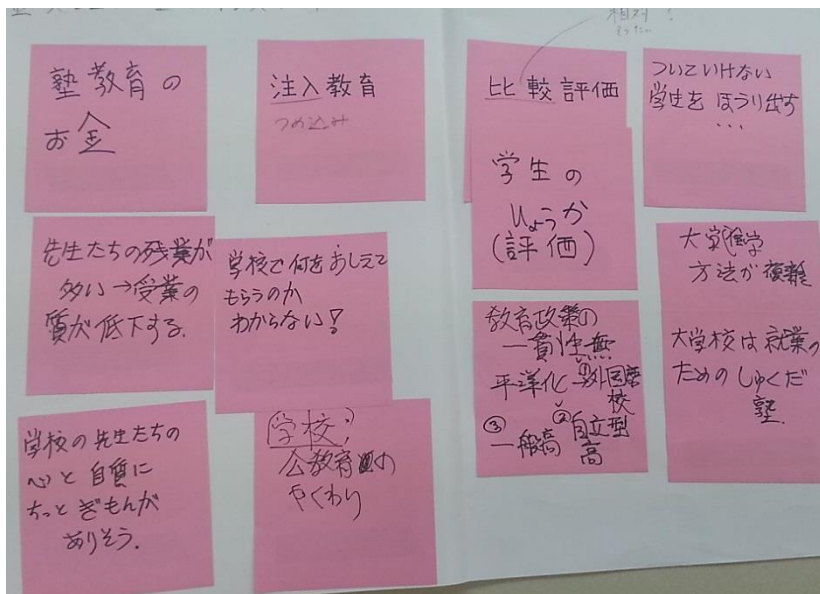 相対?
塾教育の
お金
注入教育
つめ込み
比較評価
学生の
ひょうか
(評価)
ついていけない
学生を ほうり出す
...
先生たちの残業が
多い→授業の
質が低下する.
学校で何をおしえて
もらうのか
わからない?
教育政策の
一貫性無
平準化
①外国語
校
②自立型
高
③
一般高
大学進学
方法が複雑
大学校は就業の
ための しゅくだ
塾.
学校の先生たちの
心と自質に
ちっとぎもんが
ありそう.
学校?
公教育の
やくわり